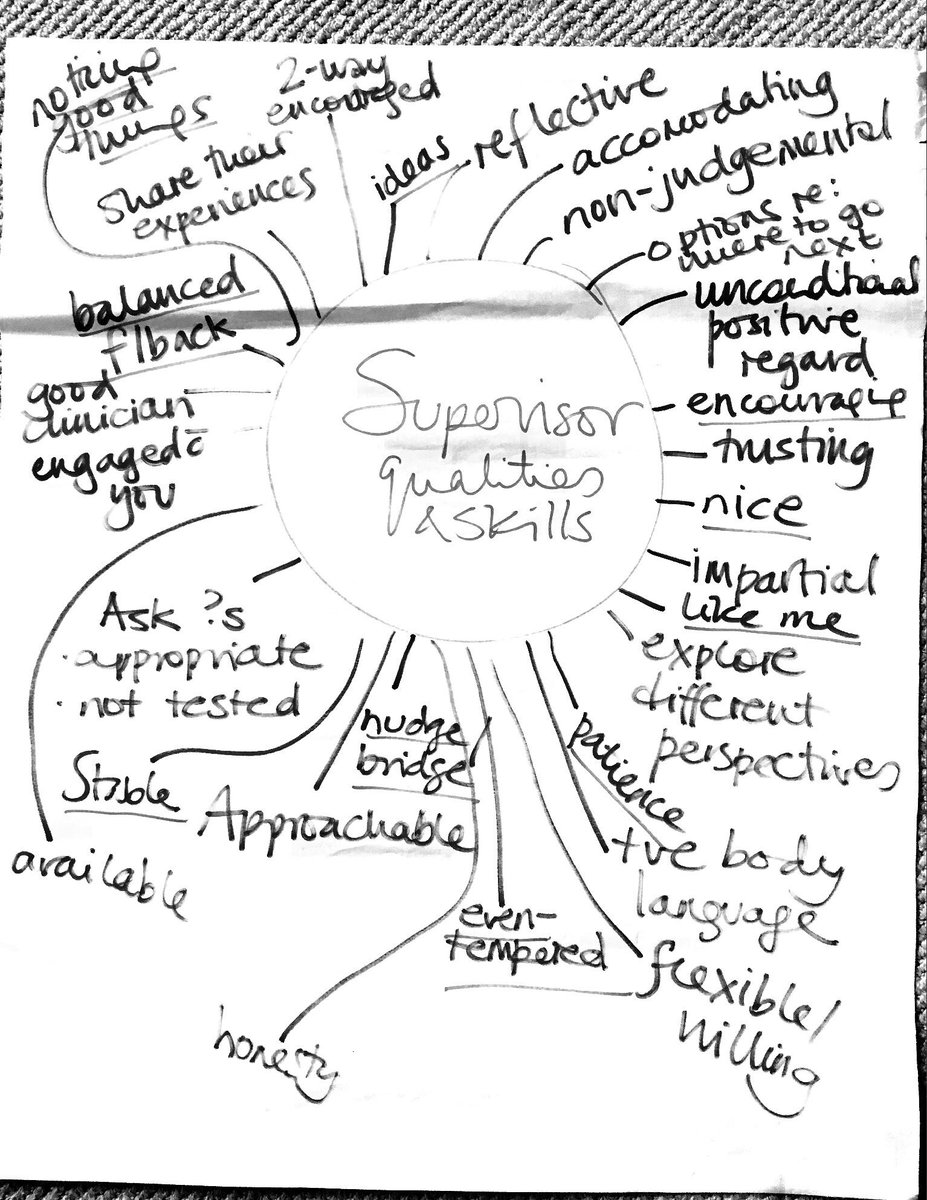 Supervisor
qualities
& skills
noticing
good
things
2-way
encouraged
share their
experiences
ideas
reflective
accomodating
non-judgemental
options re:
where to go
next
unconditional
positive
regard
encouraging
trusting
nice
impartial
like me
explore
different
perspectives
patience
+ve body
language
flexible/
willing
even-
tempered
honesty
nudge
bridge
Approachable
Stable
available
Ask ?s
· appropriate
· not tested
engaged c̄
you
good
clinician
balanced
f/back